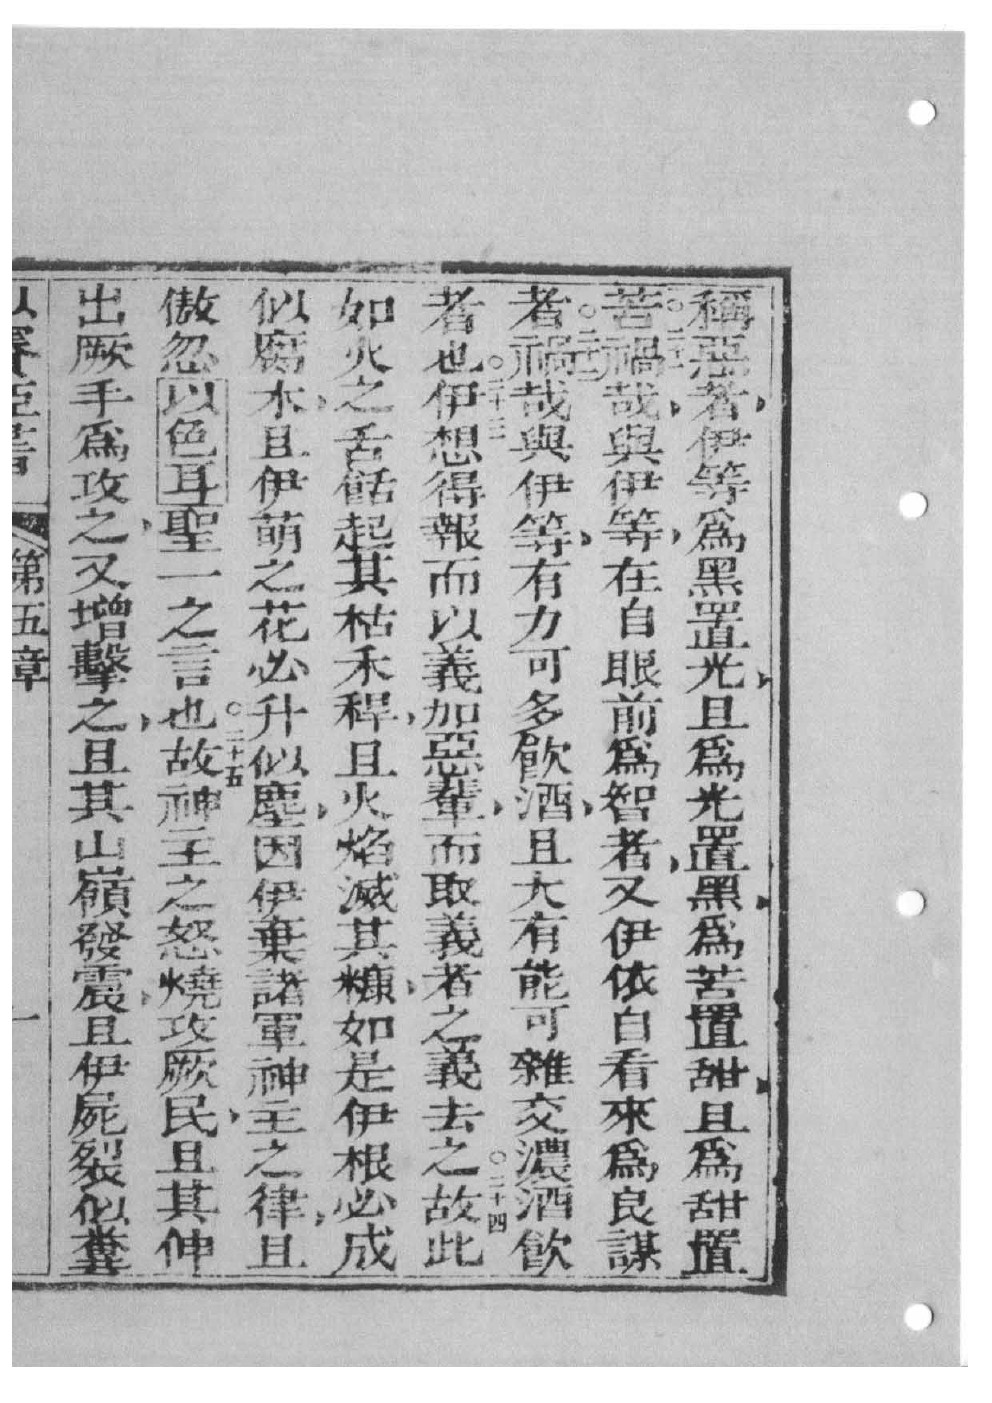 稱惡者伊等爲黑置光且爲光置黑爲苦置甜且爲甜置
苦○二十一禍哉與伊等在自眼前爲智者又伊依自看來爲良謀
者○二十二禍哉與伊等有力可多飮酒且大有能可雜交濃酒飮
者也○二十三伊想得報而以義加惡輩而取義者之義去之○二十四故此
如火之舌餂起其枯禾稈且火焰滅其糠如是伊根必成
似腐木且伊萌之花必升似塵因伊棄諸軍神主之律且
傲忽以色耳聖一之言也○二十五故神主之怒燒攻厥民且其伸
出厥手爲攻之又增擊之且其山嶺發震且伊屍裂似糞
以賽亞書 第五章 一